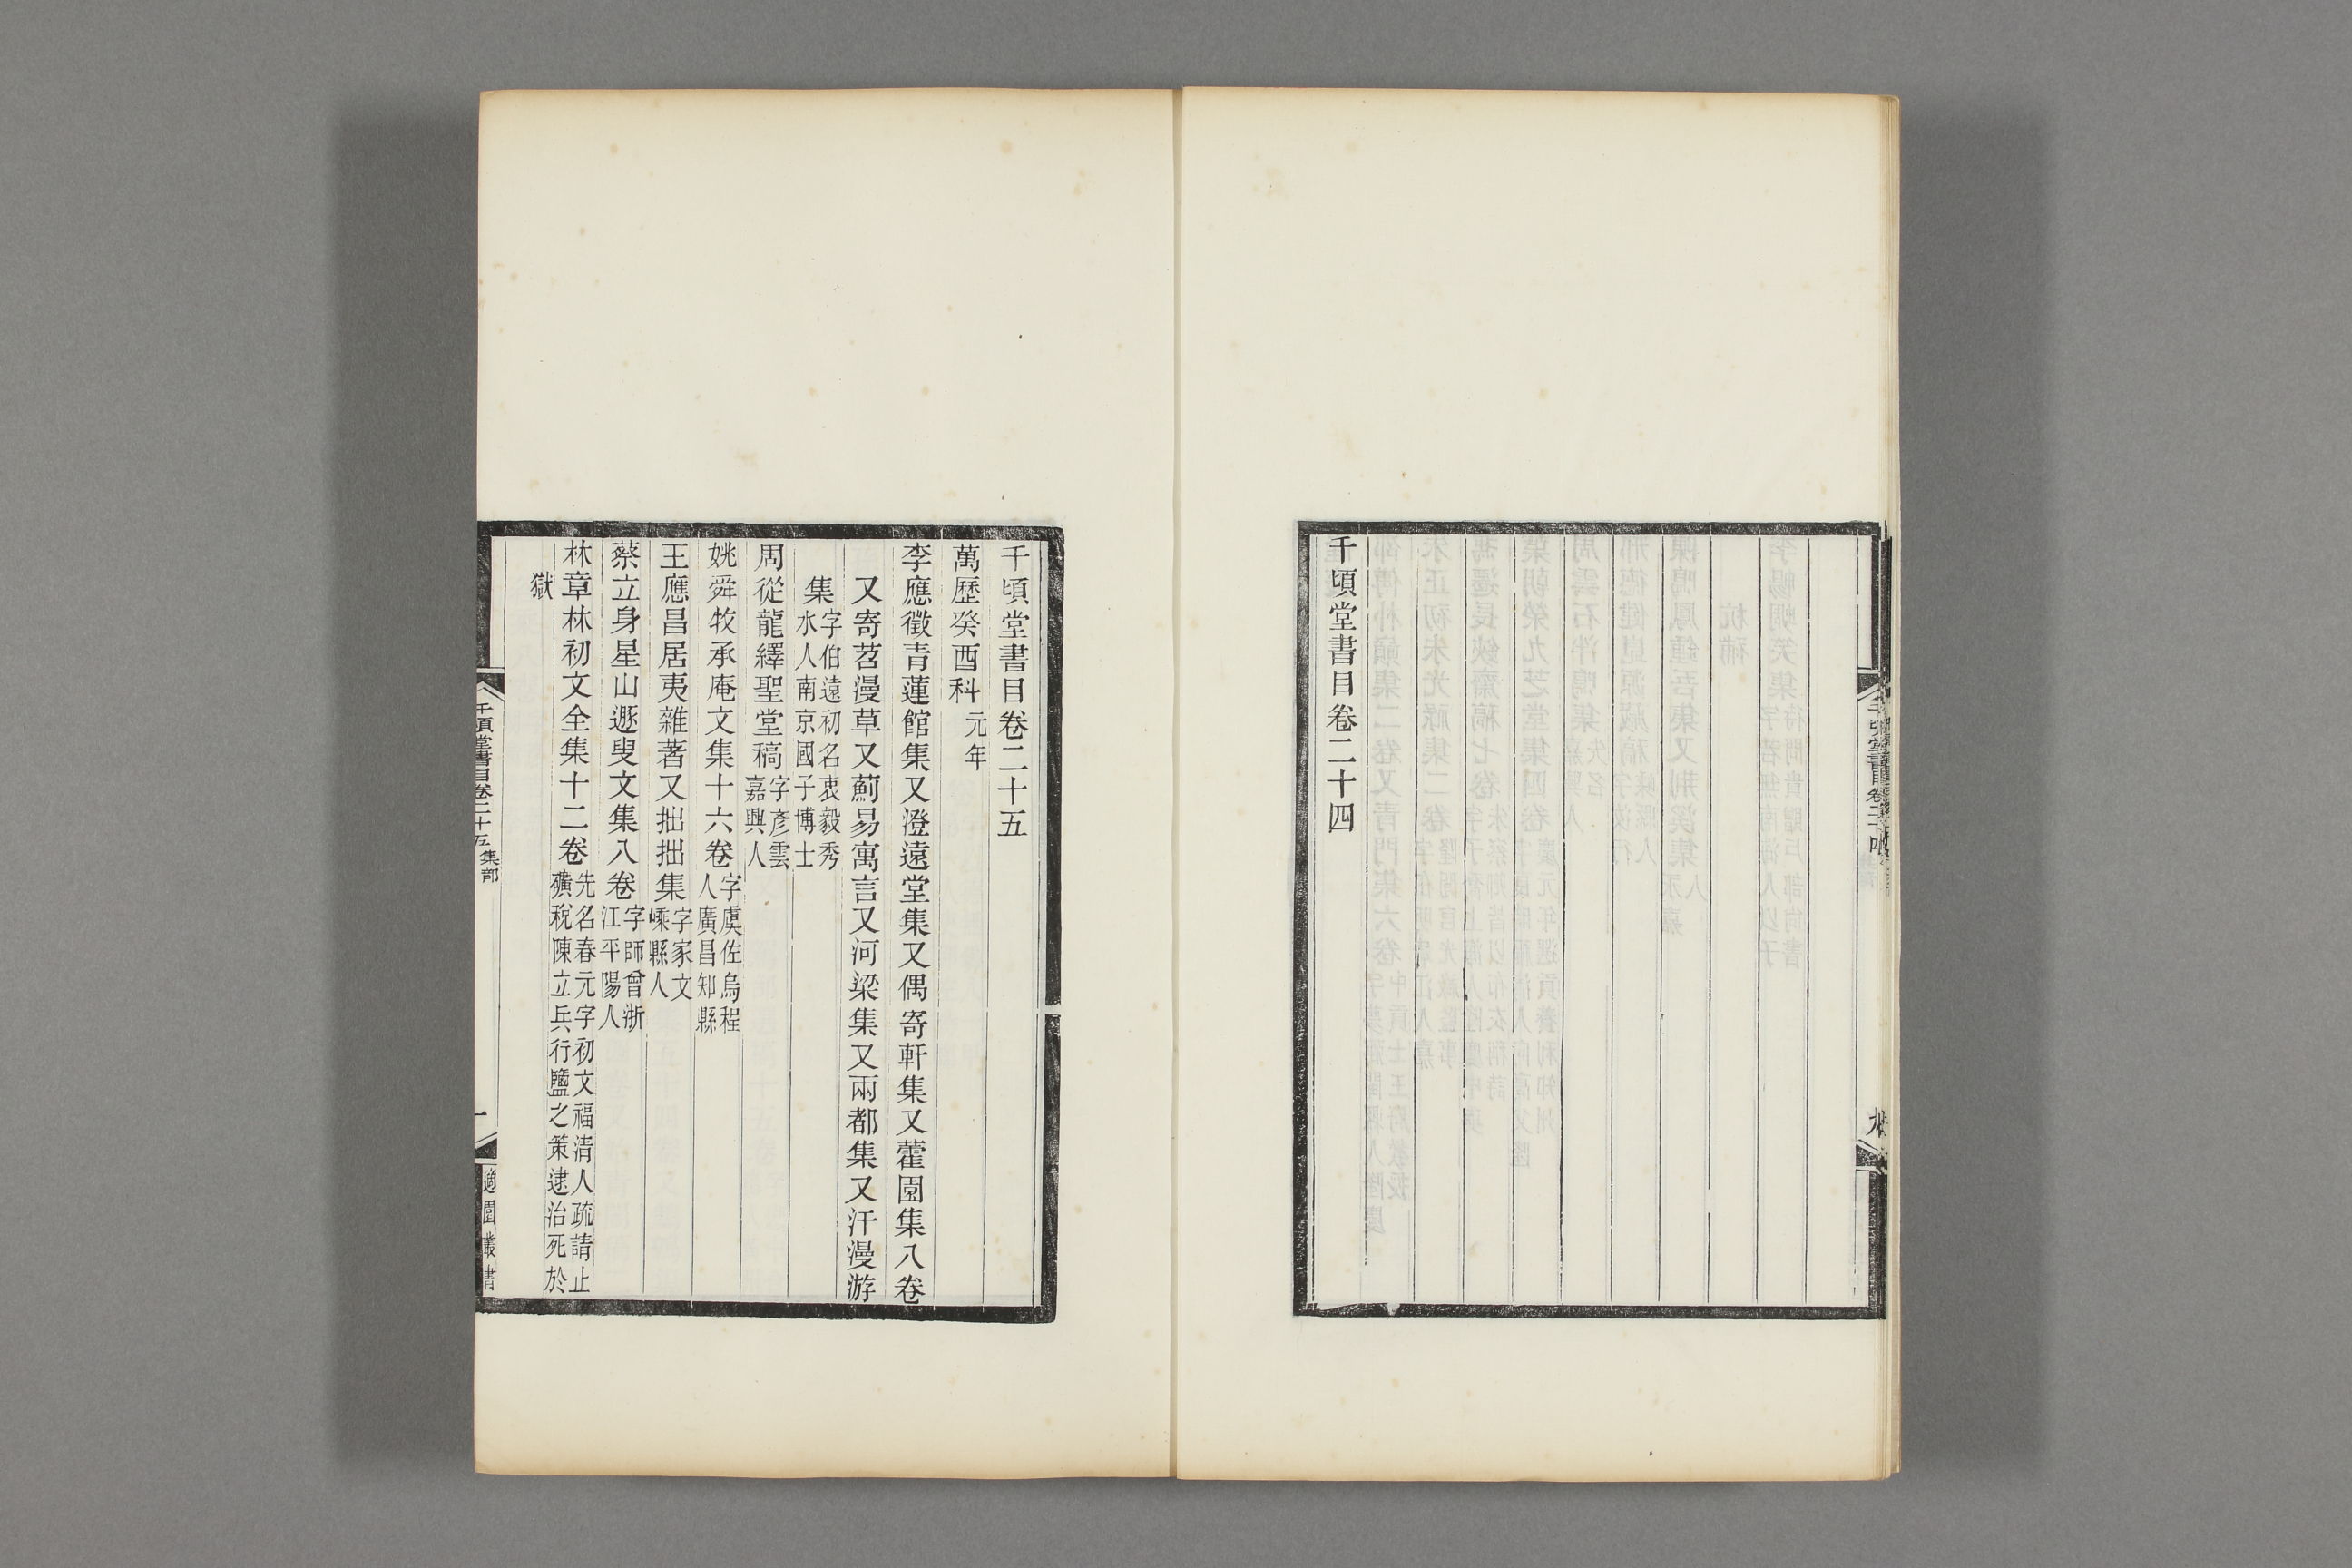 千頃堂書目卷二十四
千頃堂書目卷二十五
萬歷癸酉科元年
李應徵青蓮館集又澄遠堂集又偶寄軒集又藿園集八卷
又寄苕漫草又薊易寓言又河梁集又兩都集又汗漫游
集字伯遠初名衷毅秀
水人南京國子博士
周從龍繹聖堂稿字彥雲
嘉興人
姚舜牧承庵文集十六卷字虞佐烏程
人廣昌知縣
王應昌居夷雜著又拙拙集字家文
嵊縣人
蔡立身星山遯叟文集八卷字師曾浙
江平陽人
林章林初文全集十二卷先名春元字初文福清人疏請止
礦稅陳立兵行鹽之策逮治死於
獄
千頃堂書目卷二十五 集部
一
適園叢書